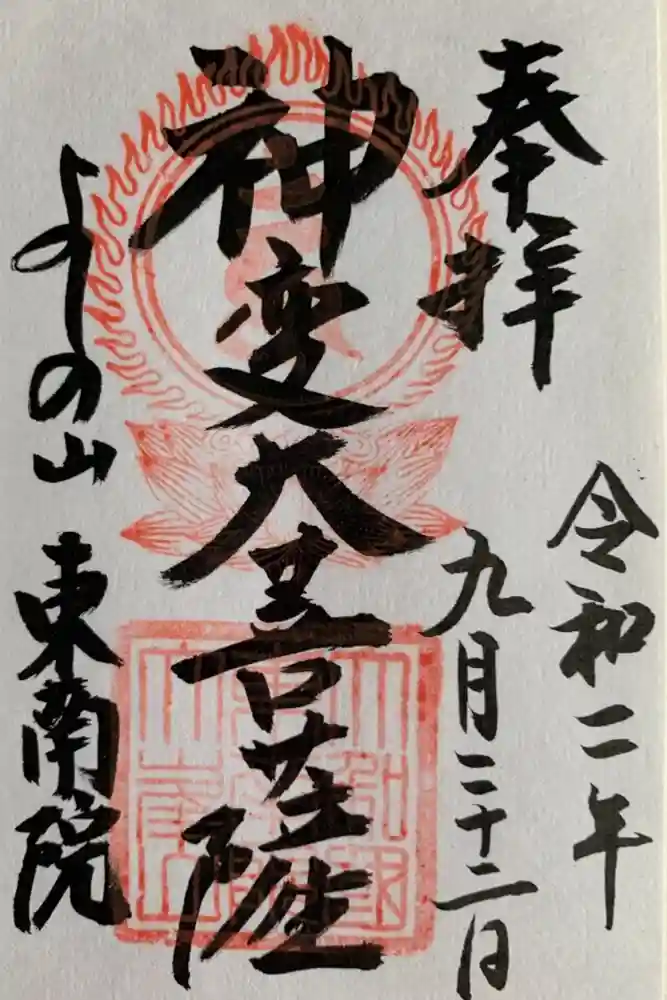 奉拝
令和二年
九月二十二日
神変大菩薩
よしの山 東南院